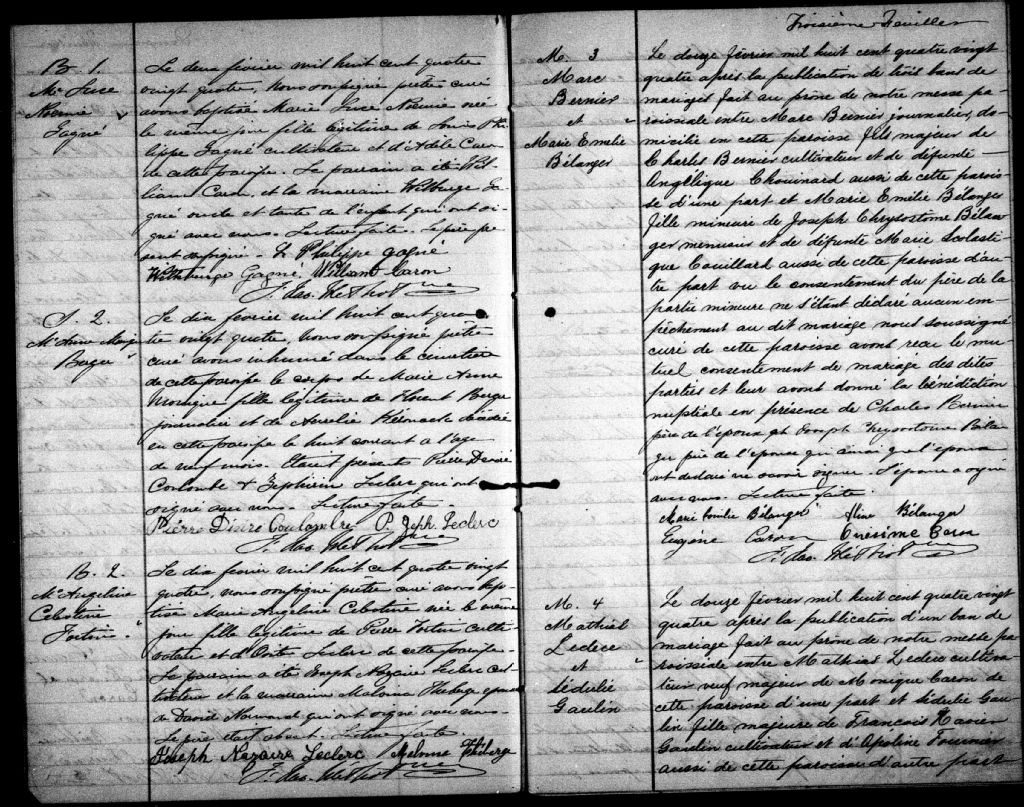 B. 1.
Mie Luce
Noémie
Gagné
Le deux février mil huit cent quatre
vingt quatre, nous soussigné prêtre curé
avons baptisé Marie Luce Noémie née
le même jour fille légitime de Louis Phi
lippe Gagné cultivateur et d'Adèle Caron
de cette paroisse. Le parrain a été Wil
liam Caron et la marraine Wilburge Ga
gné oncle et tante de l'enfant qui ont si
gné avec nous. Lecture faite. Le père pré
sent soussigné. L Philippe Gagné
Gagné William Caron
S. 2.
Mie Anne Monique
Le dix février mil huit cent qua
tre vingt quatre, nous soussigné prêtre
curé avons inhumé dans le cimetière
de cette paroisse le corps de Marie Anne
Monique fille légitime de
journalier et de Aurélie décédée
en cette paroisse le huit courant a l'age
de neuf mois. Étaient présents Pierre Désiré
Coulombe & Zephirin Leclerc qui ont
signé avec nous. Lecture faite.
Pierre Coulombre P. Zeph. Leclerc
B. 2.
Mie Angelina
Fortin
Le dix février mil huit cent quatre vingt
quatre, nous soussigné prêtre curé avons bap
tisé Marie Angelina née le même
jour fille légitime de Pierre Fortin culti-
vateur et d' Leclerc de cette paroisse.
Le parrain a été Joseph Nazaire Leclerc cul
tivateur et la marraine Malvina Theberge épouse
de David Normand qui ont signé avec nous
Le père était absent. Lecture faite
Joseph Nazaire Leclerc Theberge
Troisième Feuillet
M. 3
Marc
Bernier
et
Marie Emelie
Bélanger
Le douze février mil huit cent quatre vingt
quatre après la publication de trois bans de
mariages fait au prône de notre messe pa-
roissiale entre Marc Bernier journalier, do-
micilié en cette paroisse fils majeur de
Charles Bernier cultivateur et de défunte
Angélique Chouinard aussi de cette parois-
se d'une part et Marie Emilie Bélanger
fille mineure de Joseph Chrysostome Bélan
ger menuisier et de défunte Marie Scolasti
que Couillard aussi de cette paroisse d'au
tre part vu le consentement du père de la
partie mineure ne s'étant déclaré aucun em-
pêchement au dit mariage nous soussigné
curé de cette paroisse avons recu le mu
tuel consentement de mariage des dites
parties et leur avons donné la bénédiction
nuptiale en présence de Charles Bernier
père de l'epoux et Joseph Chrysostome Bélan
ger père de l'epouse qui ainsi que l'epoux
ont déclaré ne savoir signer. L'epouse a signé
avec nous. Lecture faite.
Marie Emélie Bélanger Bélanger
Eugène Caron Onésime Caron
M. 4
Leclerc
et
Sédulie
Gaulin
Le douze février mil huit cent quatre vingt
quatre après la publication d'un ban de
mariage fait au prône de notre messe pa
roissiale entre Mathias Leclerc cultiva
teur veuf majeur de Monique Caron de
cette paroisse d'une part et Sédulie Gau
lin fille majeure de Francois Xavier
Gaulin cultivateur et d'Apoline Fournier
aussi de cette paroisse d'autre part